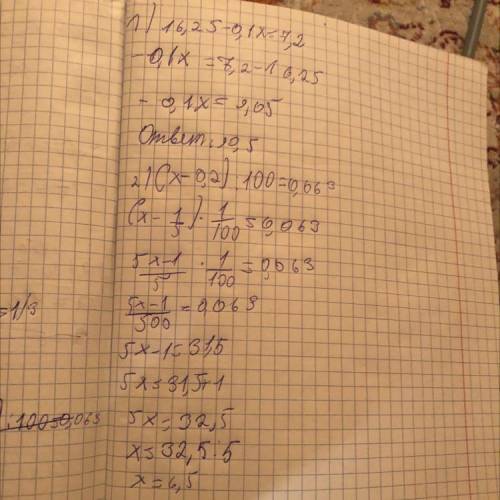 1) 16,25-0,1x=7,2
-0,1x=7,2-16,25
-0,1x=9,05
Ответ: 90,5
2) (x-0,2) 100=0,063
(x-1/5)·1/100=0,063
5x-1/5·1/100=0,063
5x-1/500=0,063
=1/3
5x-1=31,5
5x=31,5+1
:100=0,063
5x=32,5
x=32,5:5
x=6,5